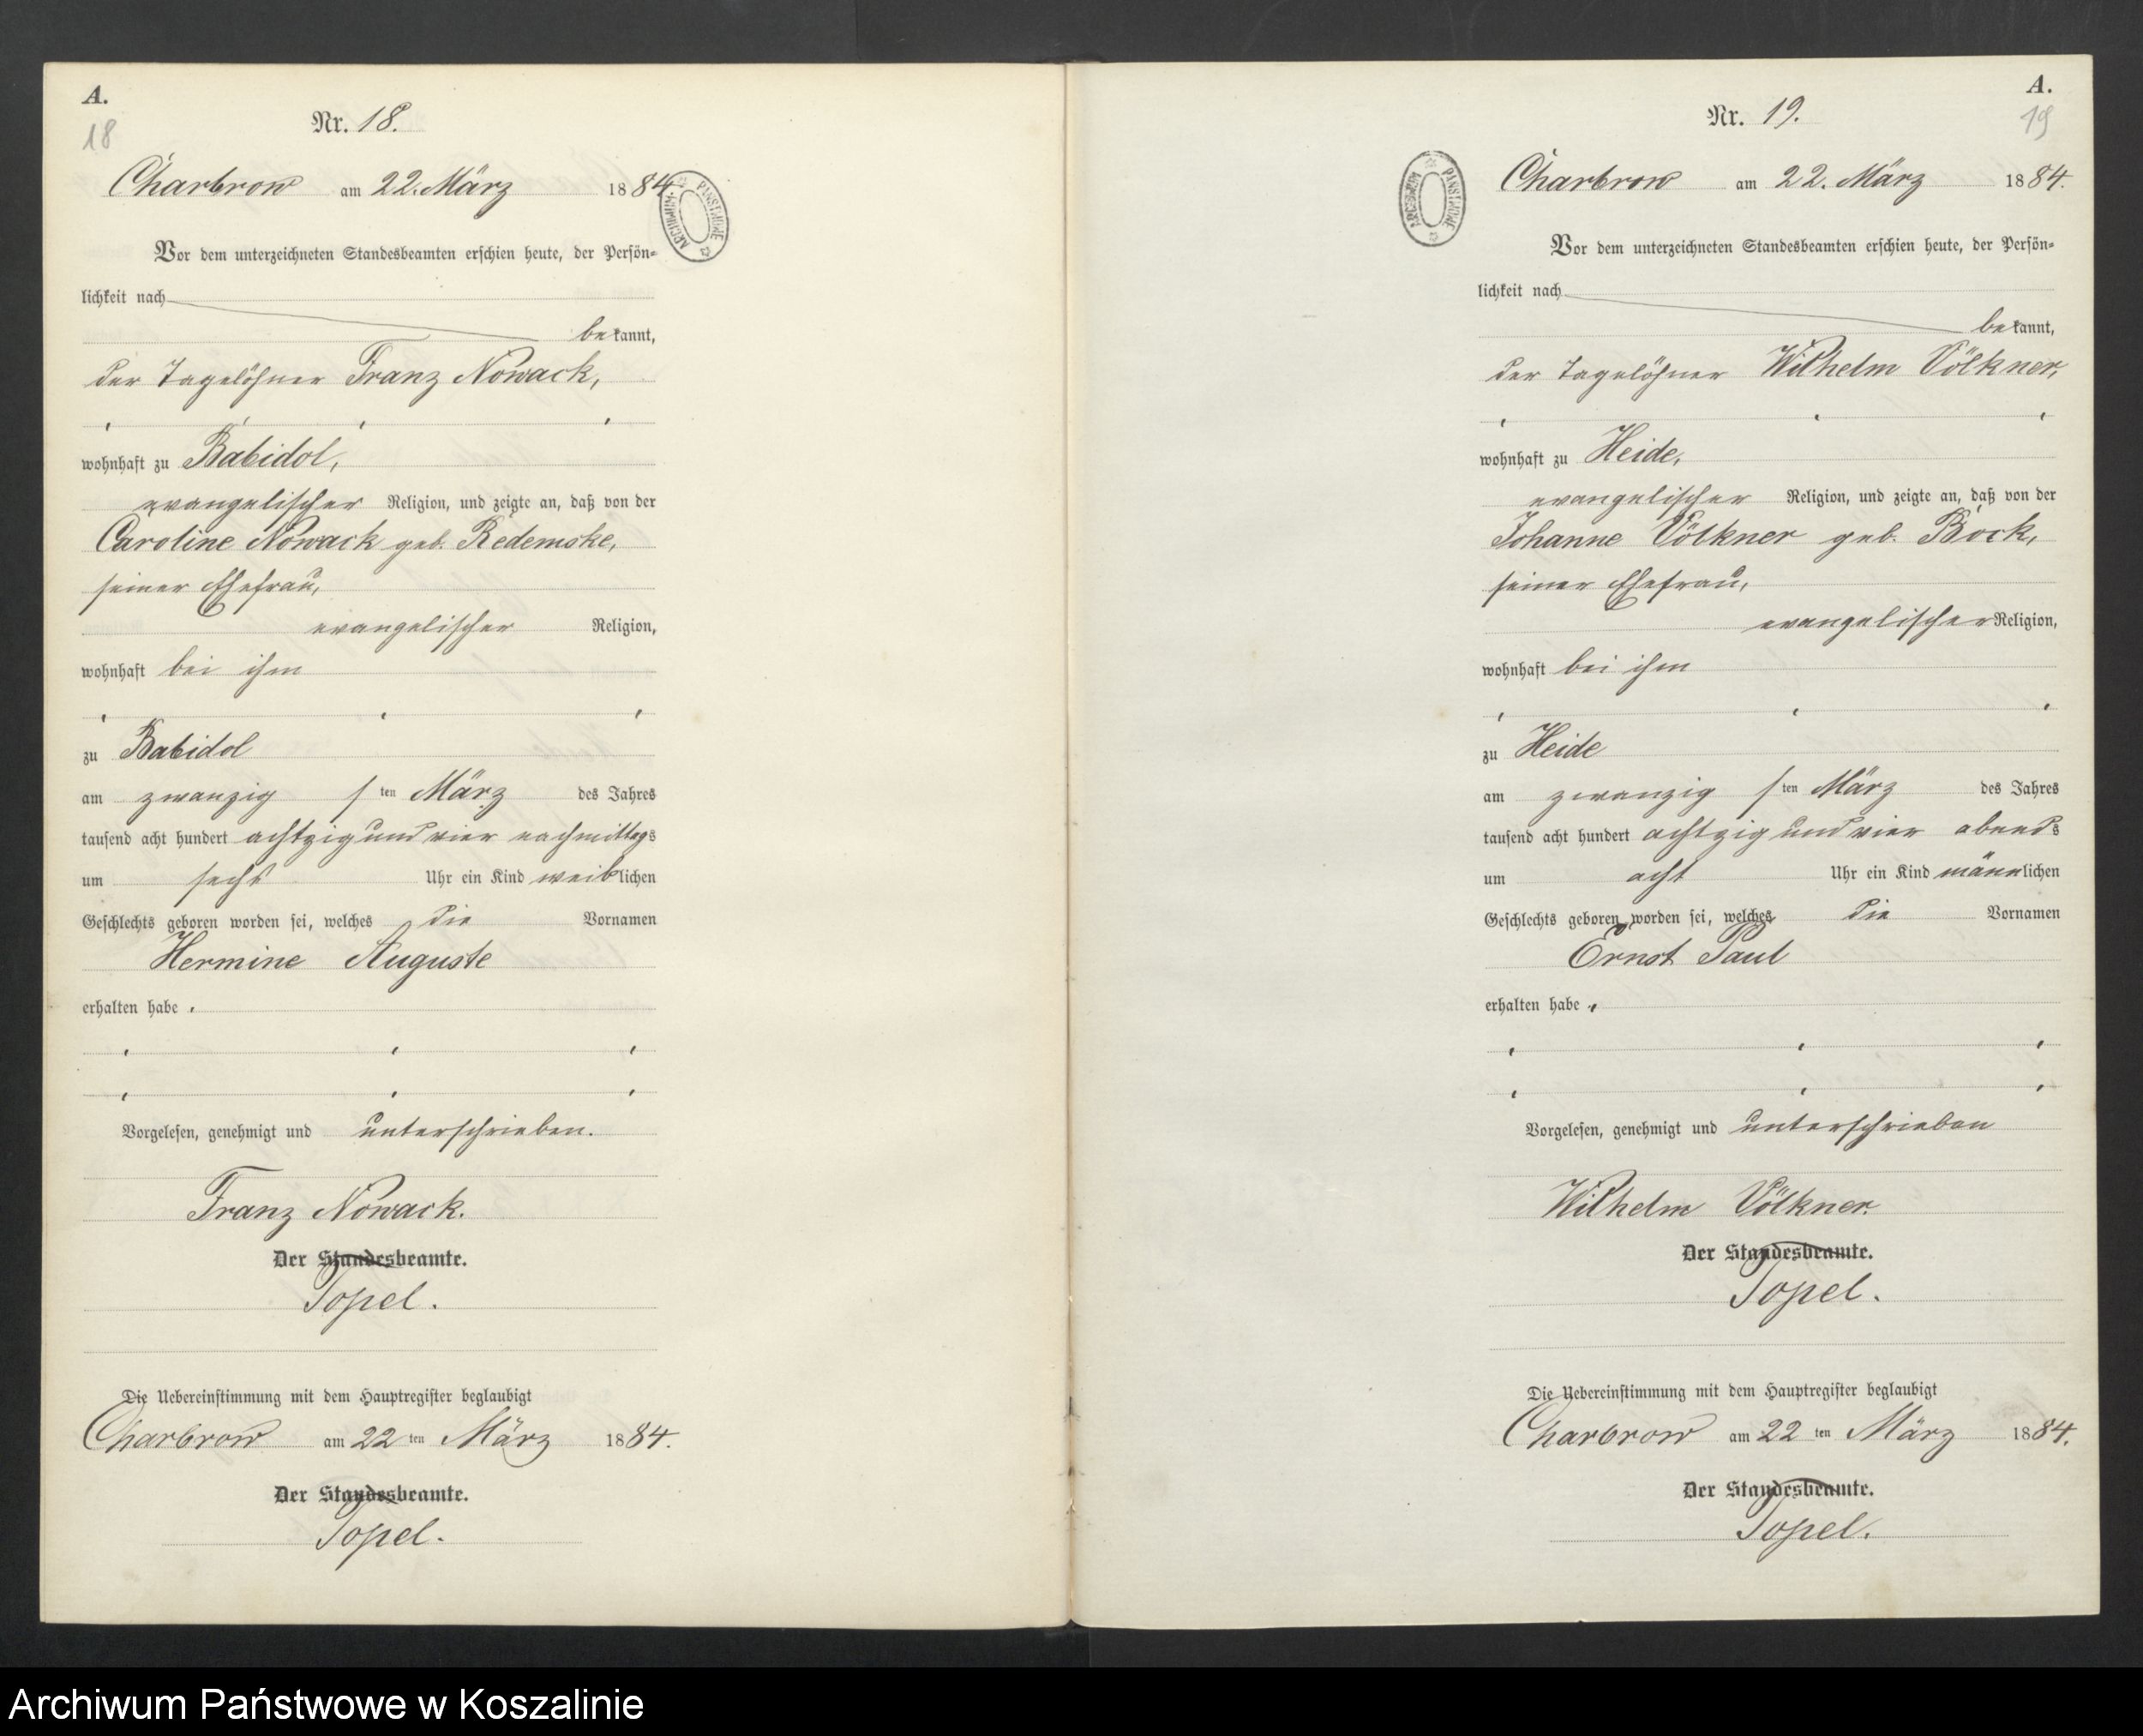 A.
18
Nr. 18.
Charbrow am 22. März 1884.
ARCHIWUM PAŃSTWOWE
Vor dem unterzeichneten Standesbeamten erschien heute, der Persön-
lichkeit nach
bekannt,
der Tagelöhner Franz Nowack,
wohnhaft zu Babidol,
evangelischer Religion, und zeigte an, daß von der
Caroline Nowack geb. Redemske,
seiner Ehefrau,
evangelischer Religion,
wohnhaft bei ihm
zu Babidol
am zwanzigsten März des Jahres
tausend acht hundert achtzig und vier nachmittags
um sechs Uhr ein Kind weiblichen
Geschlechts geboren worden sei, welches die Vornamen
Hermine Auguste
erhalten habe.
Vorgelesen, genehmigt und unterschrieben.
Franz Nowack.
Der Standesbeamte.
Topel.
Die Uebereinstimmung mit dem Hauptregister beglaubigt
Charbrow am 22ten März 1884.
Der Standesbeamte.
Topel.
A.
19
Nr. 19.
Charbrow am 22. März 1884.
ARCHIWUM PAŃSTWOWE
Vor dem unterzeichneten Standesbeamten erschien heute, der Persön-
lichkeit nach
bekannt,
der Tagelöhner Wilhelm Völkner,
wohnhaft zu Heide,
evangelischer Religion, und zeigte an, daß von der
Johanne Völkner geb. Bock,
seiner Ehefrau,
evangelischer Religion,
wohnhaft bei ihm
zu Heide
am zwanzigsten März des Jahres
tausend acht hundert achtzig und vier abends
um acht Uhr ein Kind männlichen
Geschlechts geboren worden sei, welches die Vornamen
Ernst Paul
erhalten habe.
Vorgelesen, genehmigt und unterschrieben
Wilhelm Völkner.
Der Standesbeamte.
Topel.
Die Uebereinstimmung mit dem Hauptregister beglaubigt
Charbrow am 22ten März 1884.
Der Standesbeamte.
Topel.
Archiwum Państwowe w Koszalinie